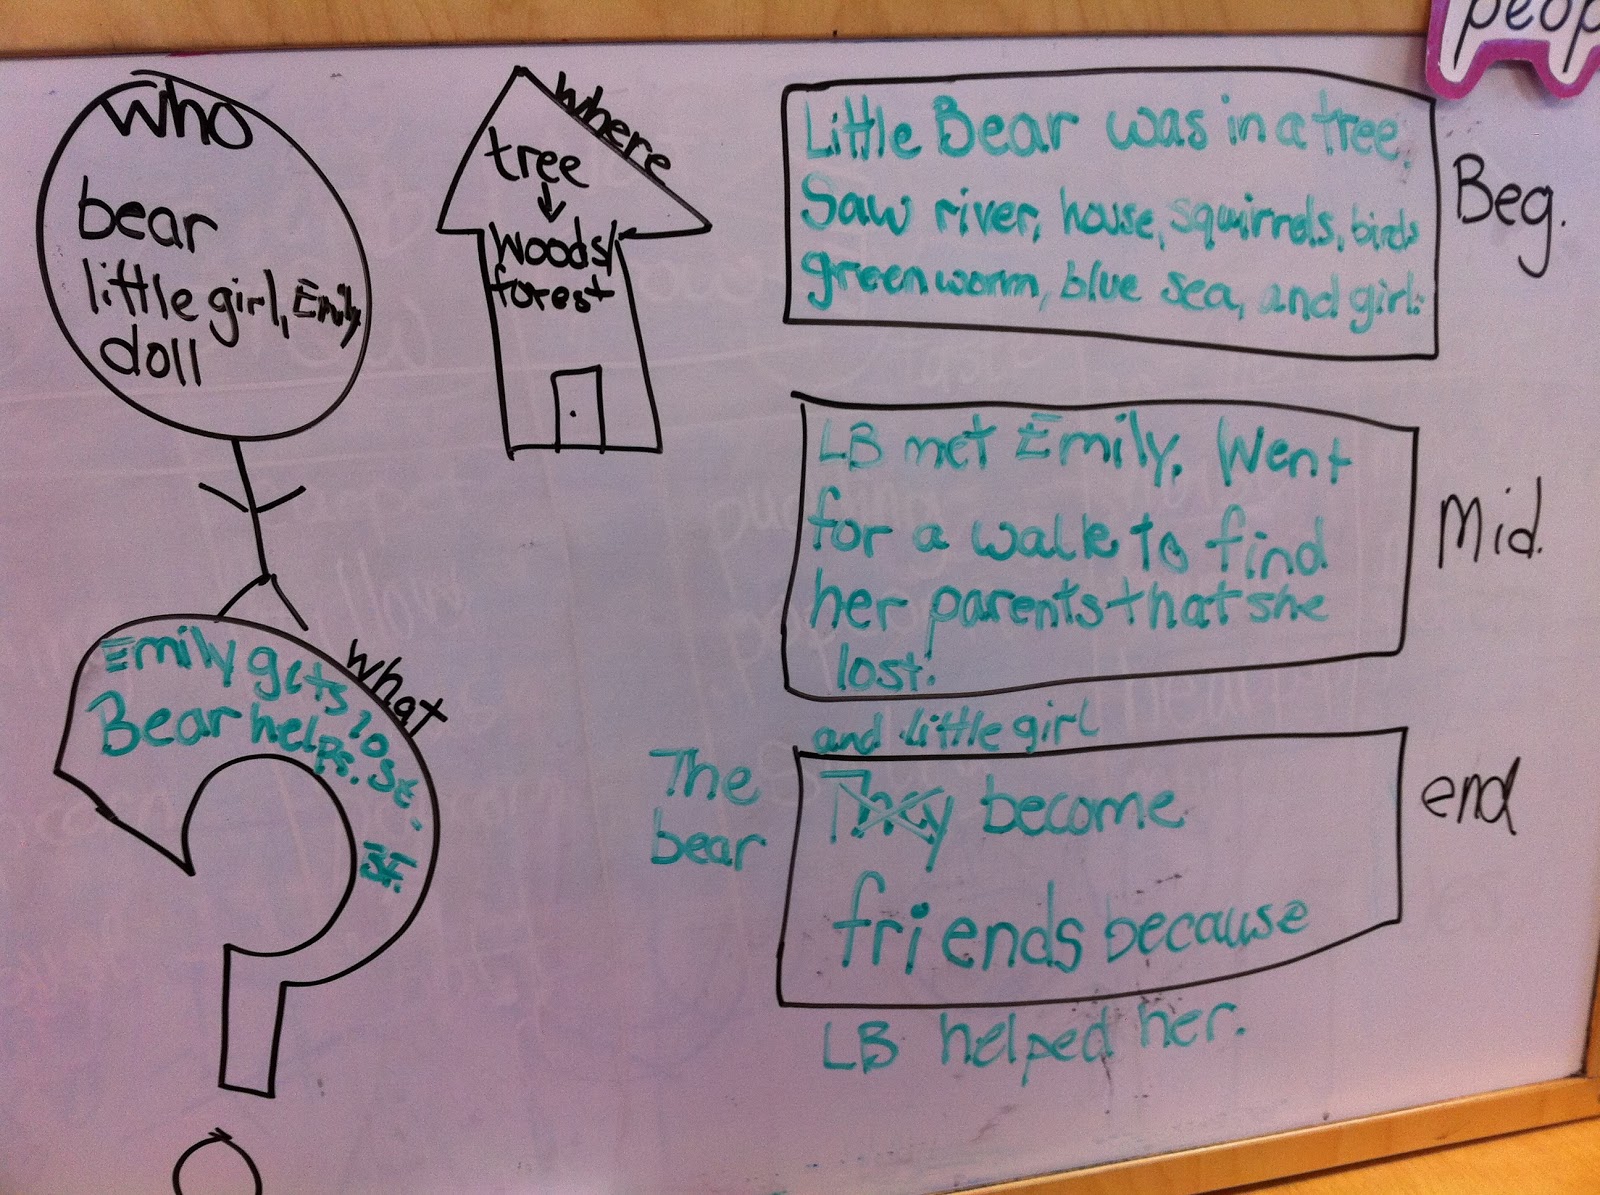 who
bear
little girl, Emily
doll
where
tree
woods/
forest
what
Emily gets lost.
Bear helps.
Little Bear was in a tree.
Saw river, house, squirrels, birds
green worm, blue sea, and girl.
Beg.
LB met Emily. Went
for a walk to find
her parents that she
lost.
Mid.
and little girl
The
bear
They become
friends because
LB helped her.
end